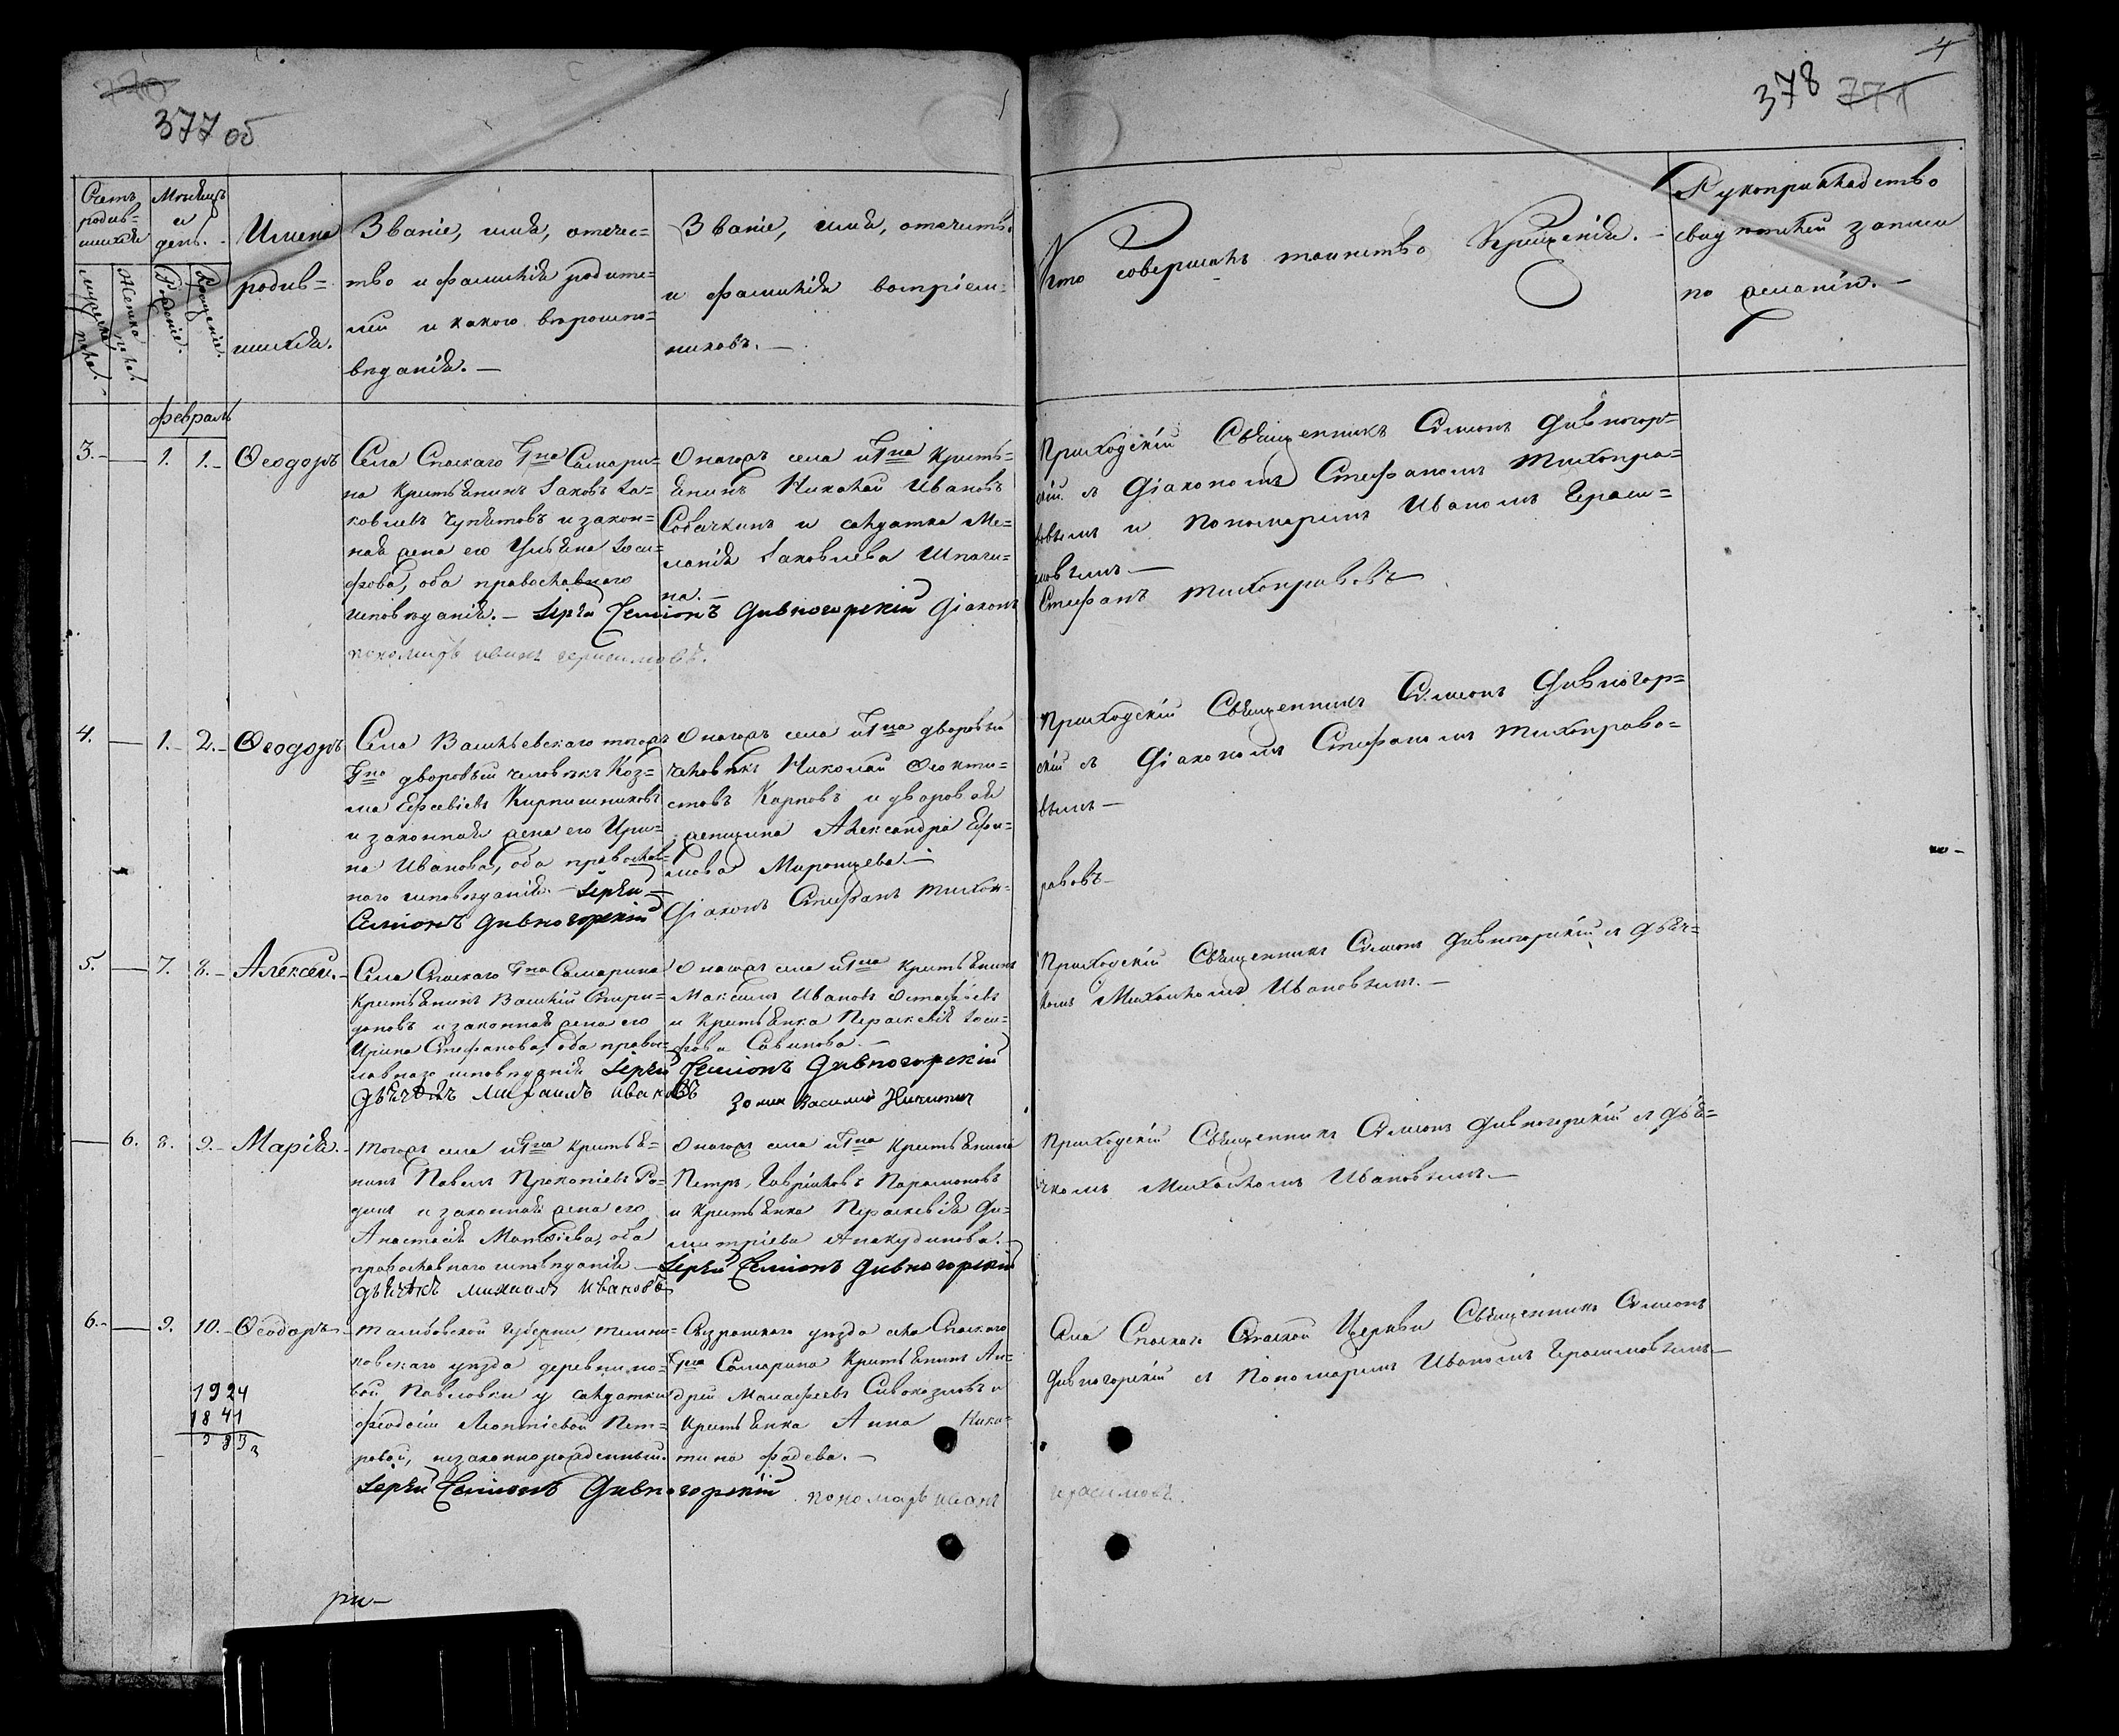 770
377 об
4
378 771
Счетъ родив=шихся
Мѣсяцъ и день.
Мужеска пола.
Женска пола.
Рожденіе.
Крещеніе.
Имена родив=шихся.
Званіе, имя, отчес=
тво и фамилія родите=
лей и какого вѣроиспо=
вѣданія. —
Званіе, имя, отчество
и фамилія воспріем=
никовъ. —
Кто совершалъ таинство Крещенія. —
Рукоприкладство
свидѣтелей записи
по желанію. —
Февраль
3. — 1. 1. — Ѳеодоръ
Села Спаскаго Гна Самари=
на крестьянинъ Іаковъ Іа=
ковлевъ и закон=
ная жена его Ульяна Іоси=
фова, оба православнаго
исповѣданія. — Іерей Семіонъ Дивногорскій Діаконъ
пономарь иванъ герасимовъ.
Онагожъ села и Гна кресть=
янинъ Николай Ивановъ
Собачкинъ и солдатка Ме=
ланія Іаковлева Шпаги=
на. —
Приходскій Священникъ Симеонъ Дивногор=
скій съ Діакономъ Стефаномъ Тихонра=
вовымъ и Пономаремъ Иваномъ Гераси=
мовымъ —
Стефанъ Тихонравовъ
4. — 1. — 2. — Ѳеодоръ
Села Васильевскаго тогожъ
Гна дворовый человѣкъ Коз=
ма Кирпишниковъ
и законная жена его Ири=
на Иванова, оба православ=
наго исповѣданія. — Іерей
Семіонъ Дивногорскій
Онагожъ села и Гна дворовый
человѣкъ Николай Ѳеокти=
стовъ Карповъ и дворовая
женщина Александра Ефи=
мова Миронцева —
Діаконъ Стефанъ Тихон=
Приходскій Священникъ Симеонъ Дивногор=
скій съ Діакономъ Стефаномъ Тихонраво=
вымъ —
равовъ —
5. — 7. 8. — Алексей. —
Села Спаскаго Гна Самарина
крестьянинъ Василій Спири=
доновъ и законная жена его
Ирина Стефанова, оба право=
славнаго исповѣданія Іерей Семіонъ Дивногорскій
дьячокъ Михаилъ Ивановъ
Онагожъ села и Гна крестьянинъ
Максимъ Ивановъ
и крестьянка Параскевія Іоси=
фова Савинова. —
Василий
Приходскій Священникъ Симеонъ Дивногорскій съ дьяч=
комъ Михаиломъ Ивановымъ. —
— 6. 8. 9. — Марія. —
Тогожъ села и Гна крестья=
нинъ Павелъ Прокопіевъ Ро=
динъ и законная жена его
Анастасія Матвѣева, оба
православнаго исповѣданія —
дьячокъ михаилъ ивановъ
Онагожъ села и Гна крестьянинъ
Петръ Гавріиловъ Парамоновъ
и крестьянка Параскевія Ди=
митріева Анкудинова. —
Іерей Семіонъ Дивногорскій
Приходскій Священникъ Симеонъ Дивногорскій съ дья=
чкомъ Михаиломъ Ивановымъ. —
6. — 9. 10. — Ѳеодоръ
Тамбовской Губерніи Темни=
ковскаго уѣзда деревни но=
вой Павловки у солдатки
Феодосіи Леонтіевой Пет=
ровой, незаконнорожденный.
Іерей Семіонъ Дивногорскій пономарь иванъ
Сызранскаго уѣзда села Спаскаго
Гна Самарина крестьянинъ Ан=
дрей Сивокозовъ и
крестьянка Анна Ники=
тина Фадева. —
Села Спаскаго Спаской Церкви Священникъ Симеонъ
Дивногорскій съ Пономаремъ Иваномъ Герасимовымъ —
герасимовъ.
1924
1841
83
ри —